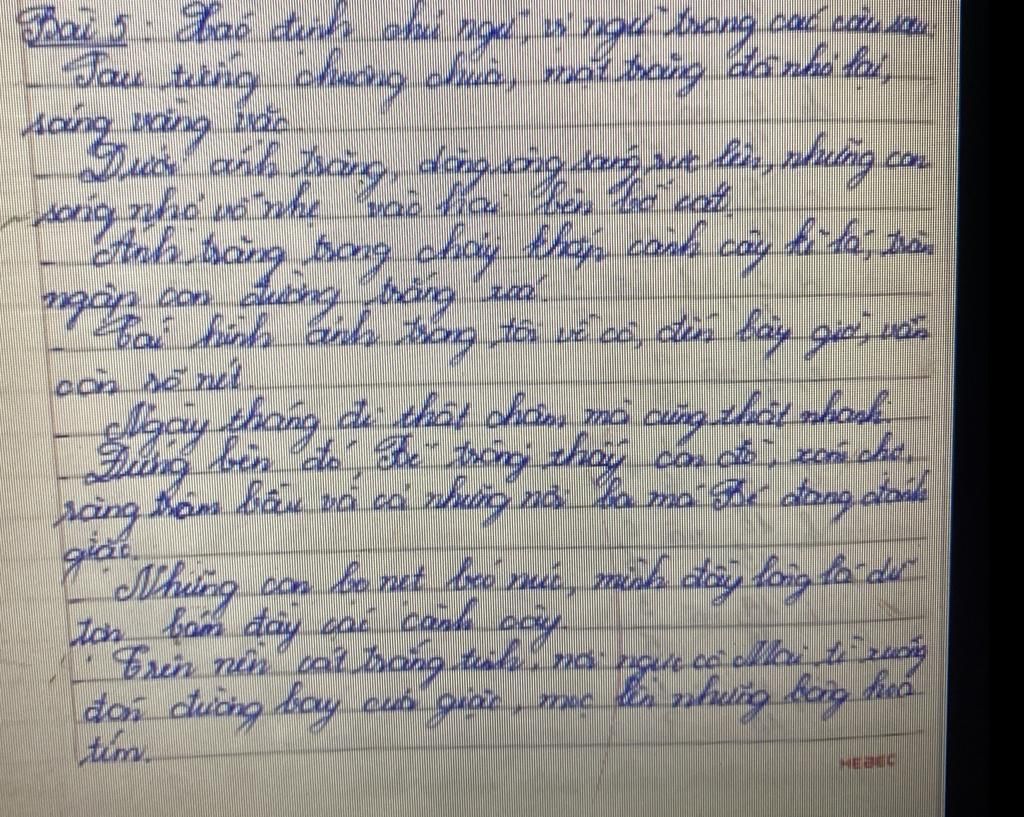 Bài 5: Xác định chủ ngữ, vị ngữ trong các câu sau.
- Sau tiếng chuông chùa, mặt trăng đã nhỏ lại,
sáng vằng vặc.
- Dưới ánh trăng, dòng sông sáng rực lên, những con
sóng nhỏ vỗ nhẹ vào hai bên bờ cát.
- Ánh trăng trong chảy khắp cành cây kẽ lá, tràn
ngập con đường trắng xoá.
- Cái hình ảnh trong tôi về cô, đến bây giờ, vẫn
còn rõ nét.
- Ngày tháng đi thật chậm mà cũng thật nhanh.
- Đứng bên đó, Bé trông thấy con đò, xóm chợ,
rặng trâm bầu và cả những nơi ba má Bé đang đánh
giặc.
- Những con bọ nẹt béo núc, mình đầy lông lá dữ
tợn bám đầy các cành cây.
- Trên nền cát trắng tinh, nơi ngực cô Mai tì xuống
đón đường bay của giặc, mọc lên những bông hoa
tím.
HEBEC